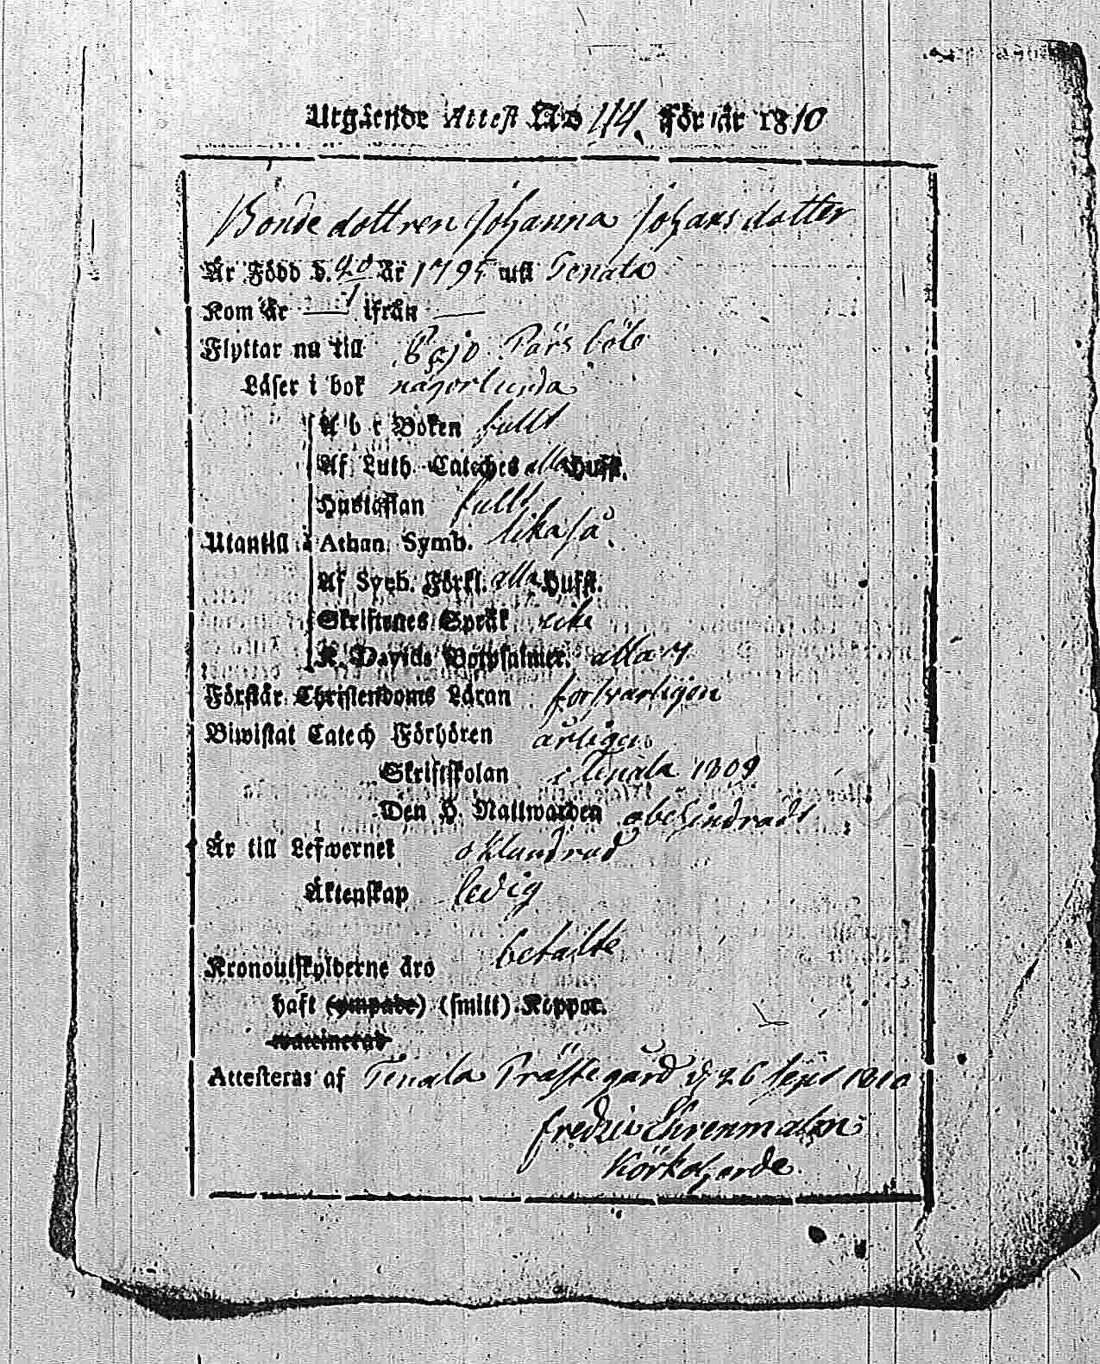 Utgående Attest No 44. för år 1810
Bonde dottren Johanna Johans dotter
Är Född d. år 1795 uti Tenala
Kom år — ifrån —
Flyttar nu till Pojo Pärs böle
Läser i bok någorlunda
A b c Boken fullt
Af Luth. Cateches alla Hufst.
Hustaflan fullt
Utantill Athan. Symb. lika så.
Af Sveb. Förkl. alla Hufst.
Skriftenes Språk icke
K. Davids Botpsalmer. alla 7
Förstår Christendoms Läran försvarligen
Biwistat Catech Förhören årligen
Skriftskolan i Tenala 1809
Den H. Nattwarden obehindradt
Är till Lefwernet oklandrad
Äktenskap ledig
Kronoutskylderne äro betalte
haft (ympade) (smitt) Koppor.
waccinerad
Attesteras af Tenala Prästegård d. 26 Sept 1810
Fredric Ehrenmalm
Körkoherde